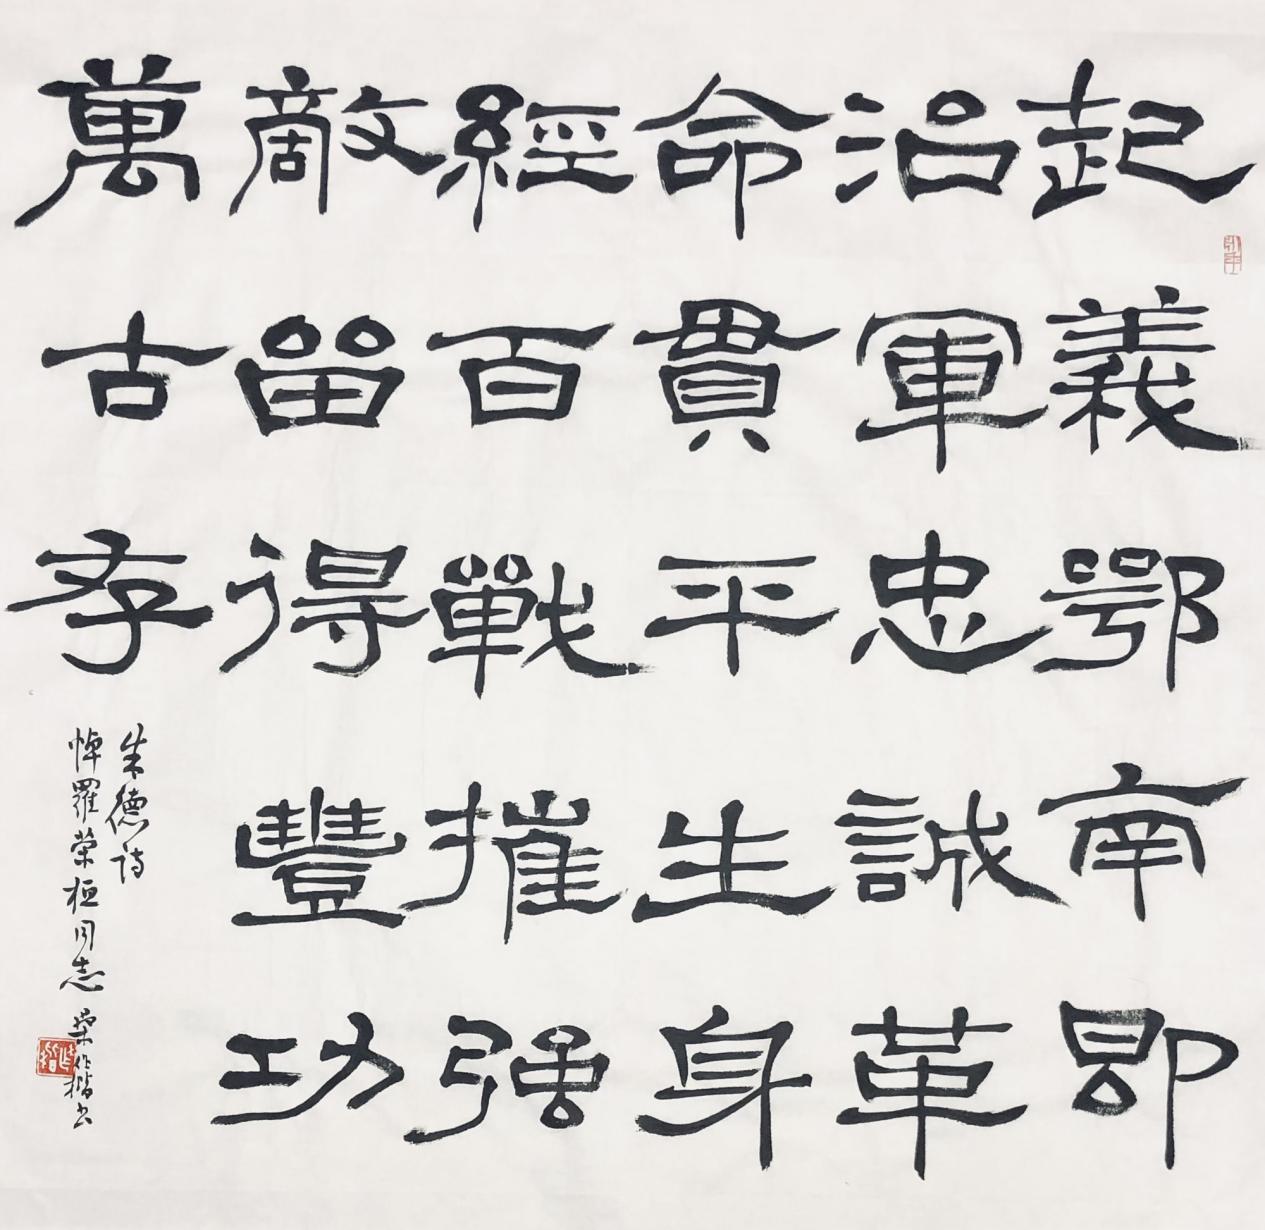 起義鄂南即
治軍忠誠革
命貫平生身
經百戰摧强
敵留得豐功
萬古存
朱德诗
悼羅荣桓同志 作楷书